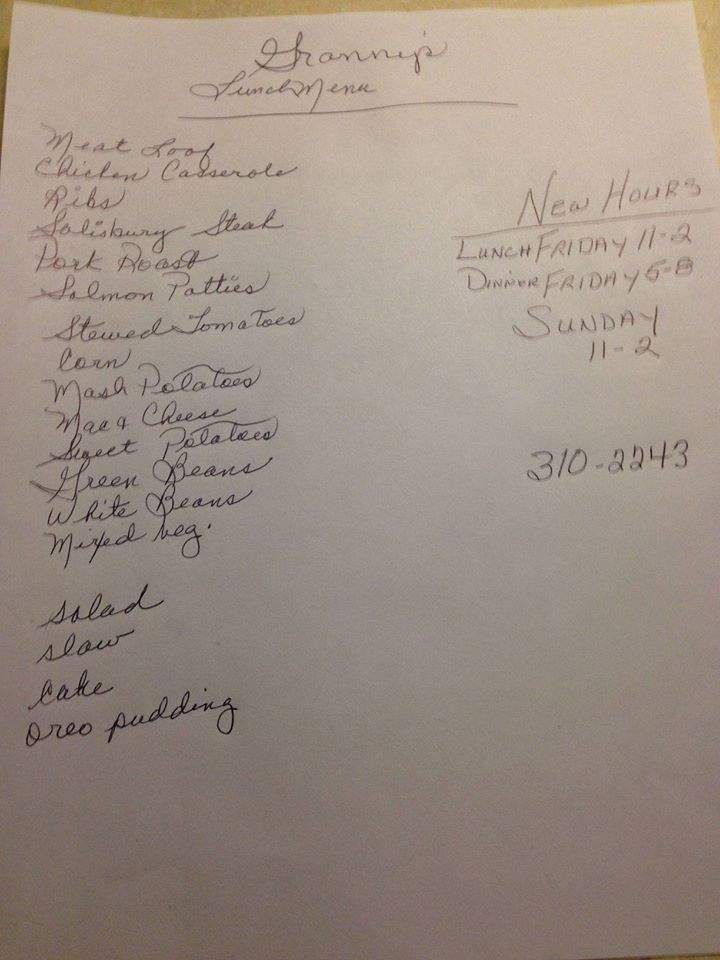 Granny's
Lunch Menu
Meat Loaf
Chicken Casserole
Ribs
Salisbury Steak
Pork Roast
Salmon Patties
Stewed Tomatoes
Corn
Mash Potatoes
Mac & Cheese
Sweet Potatoes
Green Beans
White Beans
Mixed veg.
salad
slaw
cake
oreo pudding
New Hours
Lunch Friday 11-2
Dinner Friday 5-8
Sunday
11-2
310-2243